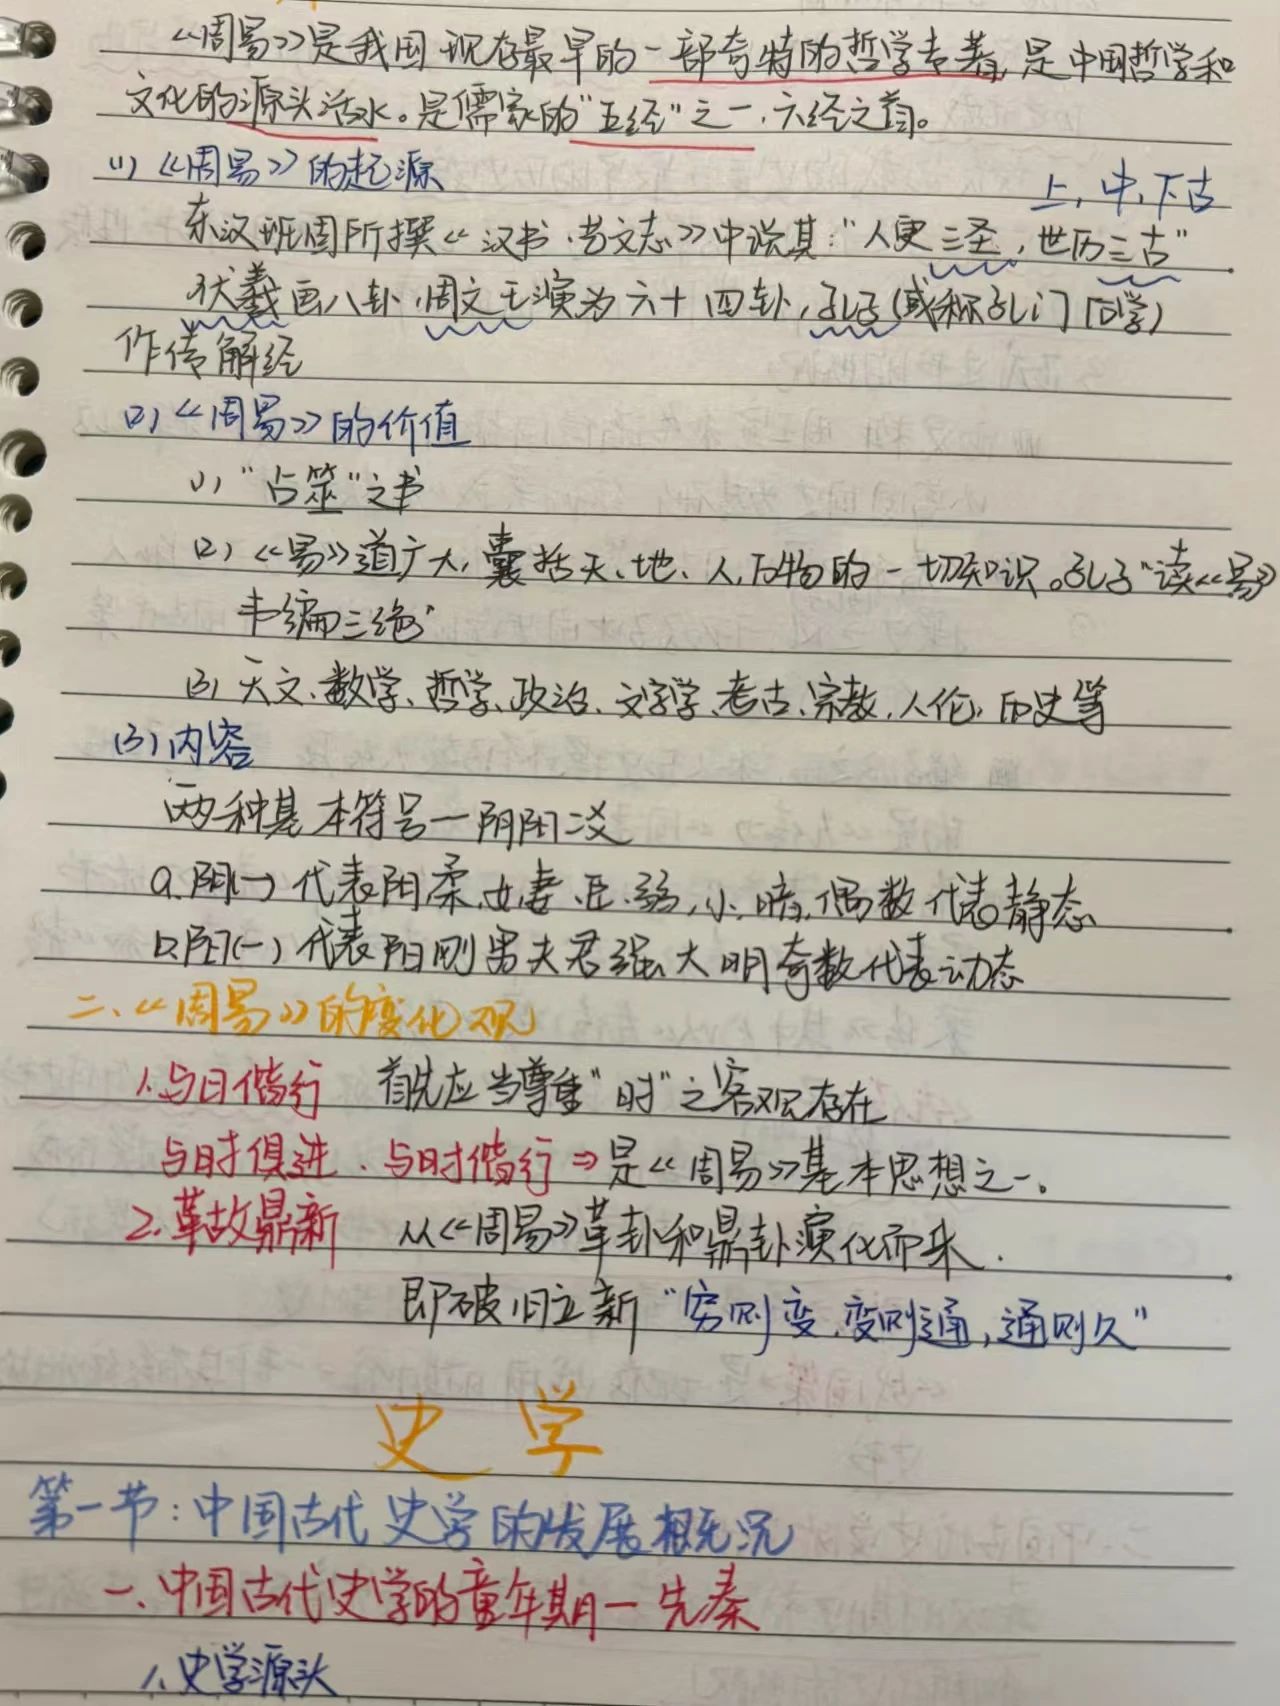 《周易》是我国现存最早的一部奇特的哲学专著,是中国哲学和
文化的源头活水。是儒家的"五经"之一,六经之首。
(1)《周易》的起源
上,中,下古
东汉班固所撰《汉书·艺文志》中说其:"人更三圣,世历三古"
伏羲画八卦,周文王演为六十四卦,孔子(或称孔门同学)
作传解经
(2)《周易》的价值
(1)"占筮"之书
(2)《易》道广大,囊括天、地、人,万物的一切知识。孔子"读《易》
韦编三绝"
(3)天文、数学、哲学、政治、文字学、考古、宗教,人伦,历史等
(3)内容
两种基本符号—阴阳二爻
a.阴(--)代表阴柔,女妻,臣,弱,小,暗,偶数代表静态
b.阳(—)代表阳刚男夫君强大明奇数代表动态
二、《周易》的变化观
1.与日偕行 首先应当尊重"时"之客观存在
与时俱进、与时偕行⇒是《周易》基本思想之一。
2.革故鼎新 从《周易》革卦和鼎卦演化而来.
即破旧立新"穷则变,变则通,通则久"
史学
第一节:中国古代史学的发展概况
一、中国古代史学的童年期—先秦
1.史学源头